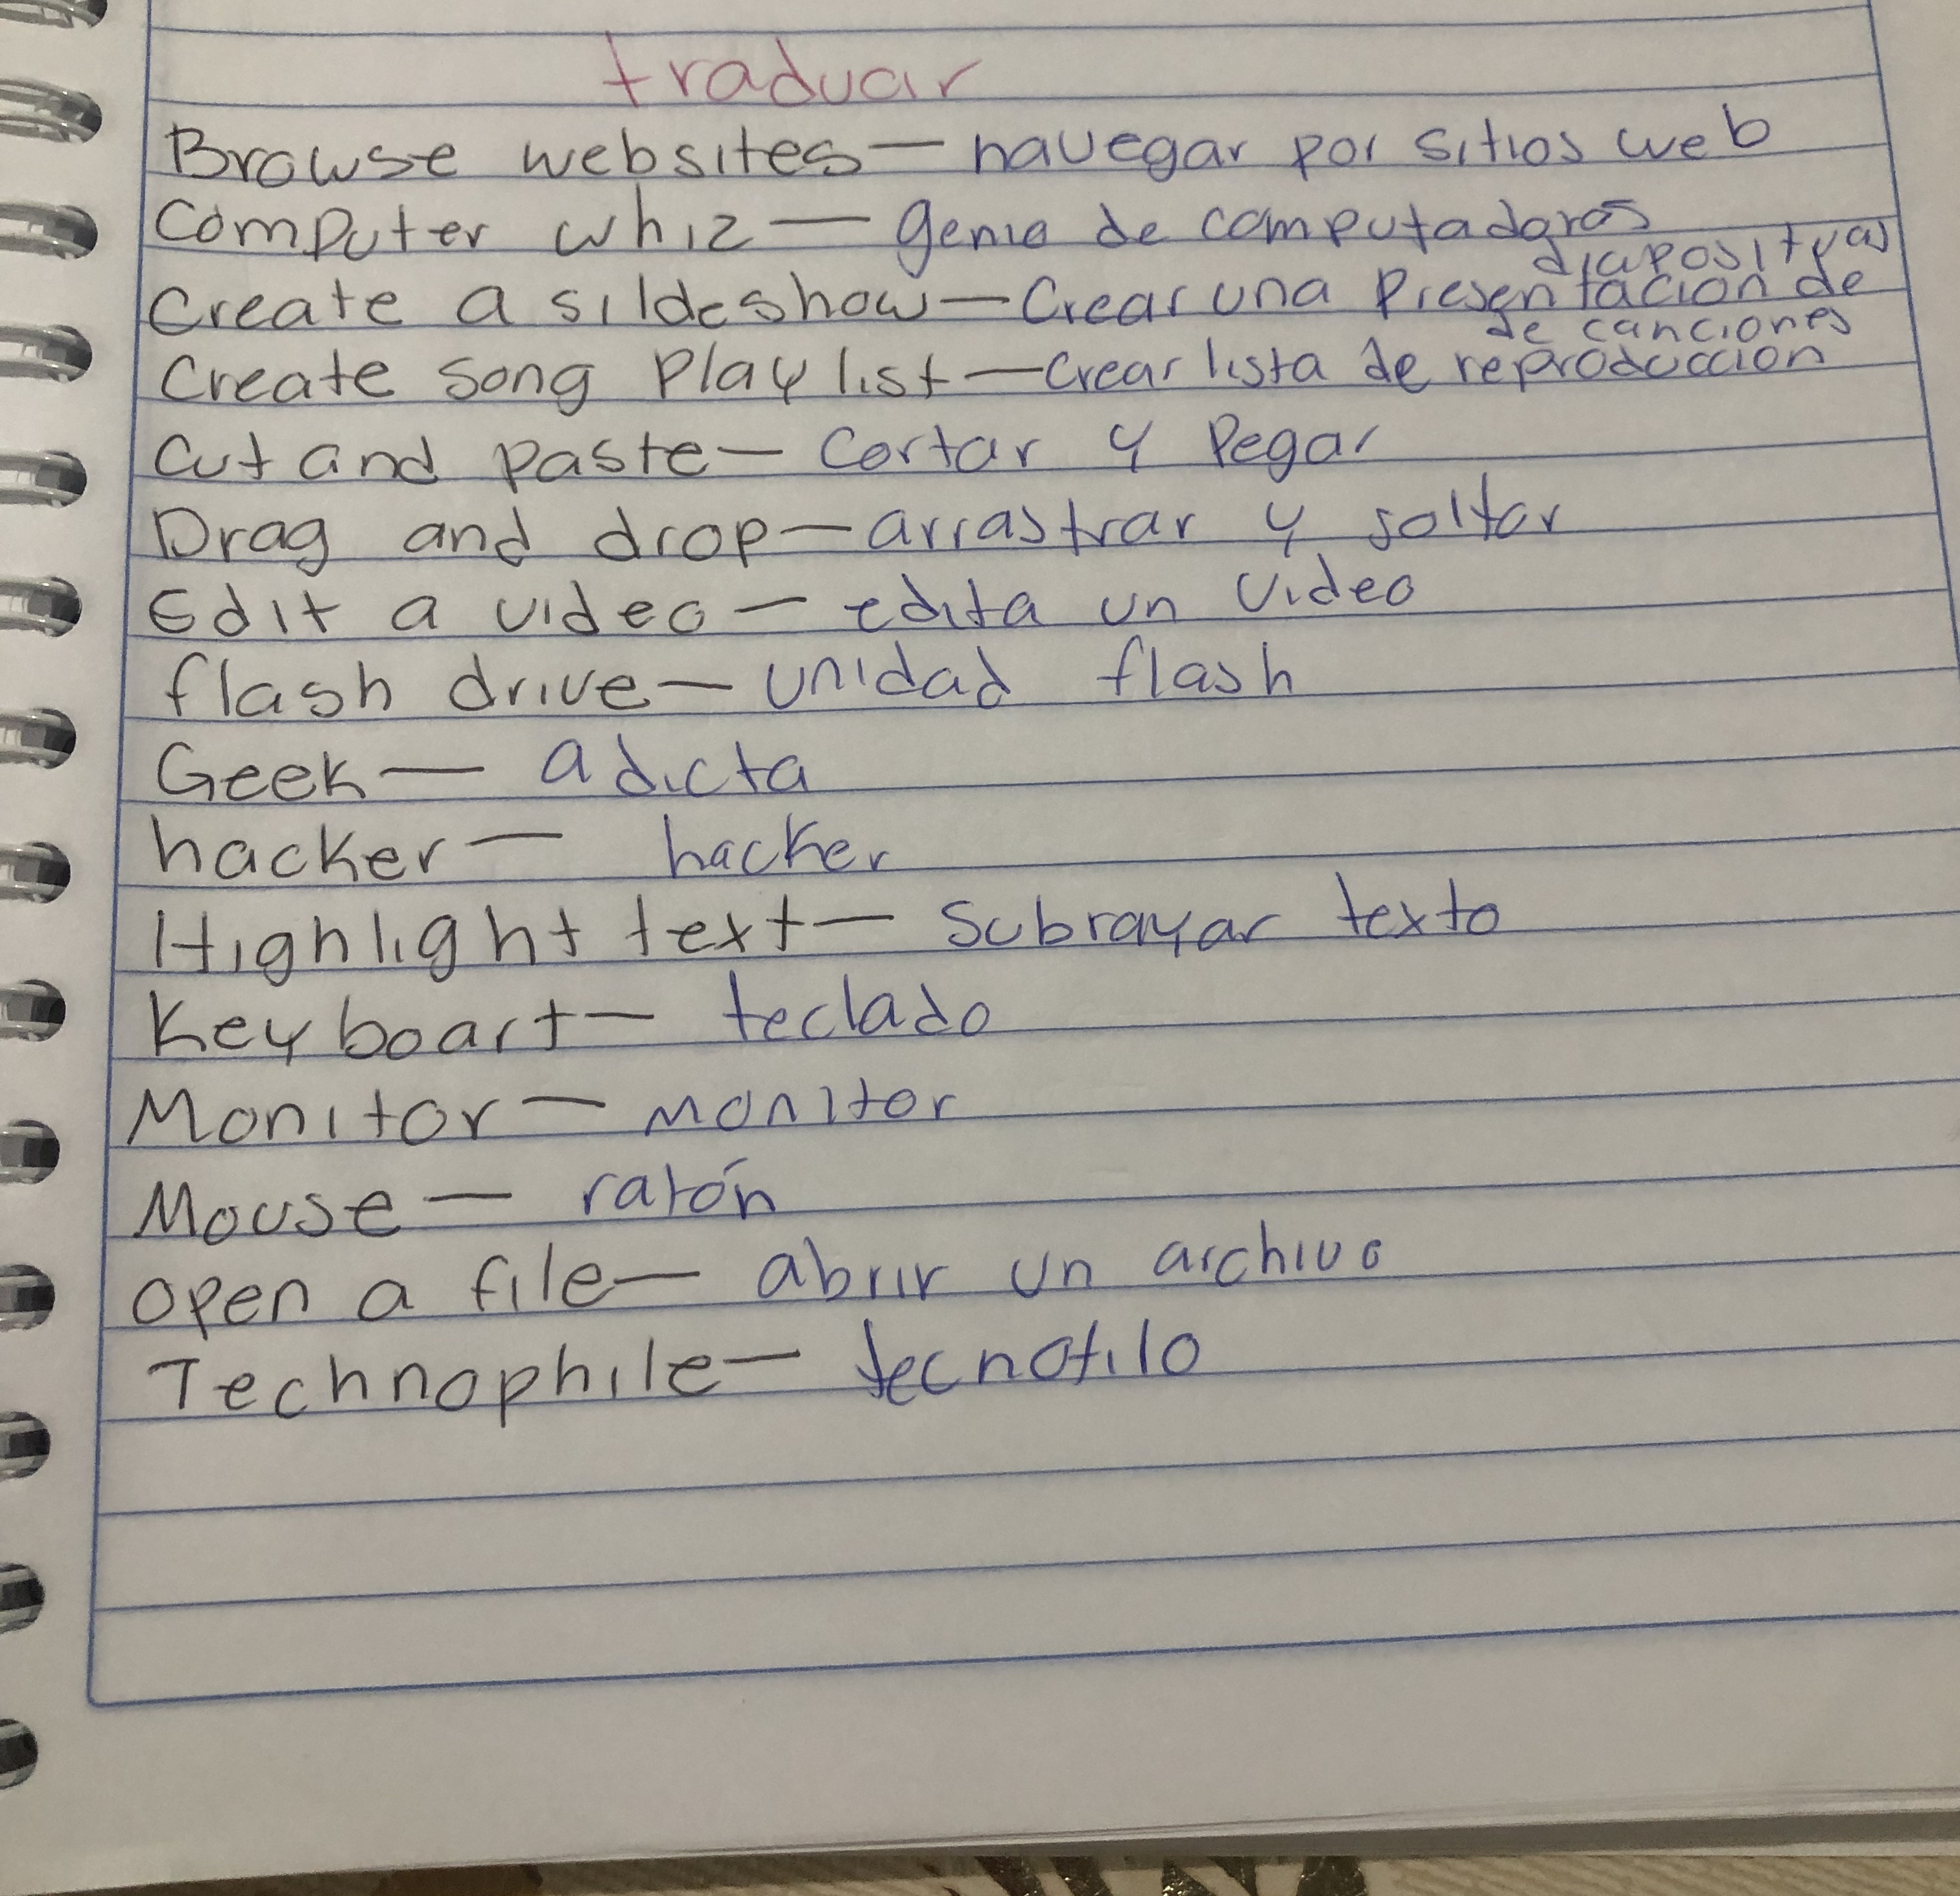 traducir
Browse websites — navegar por sitios web
Computer whiz — genio de computadoras
Create a sildeshow — Crear una Presentacion de diapositivas
Create song Play list — Crear lista de reproduccion de canciones
Cut and paste — Cortar y Pegar
Drag and drop — arrastrar y soltar
Edit a video — edita un video
flash drive — unidad flash
Geek — adicta
hacker — hacker
Highlight text — Subrayar texto
Keyboart — teclado
Monitor — monitor
Mouse — ratón
open a file — abrir un archivo
Technophile — tecnofilo